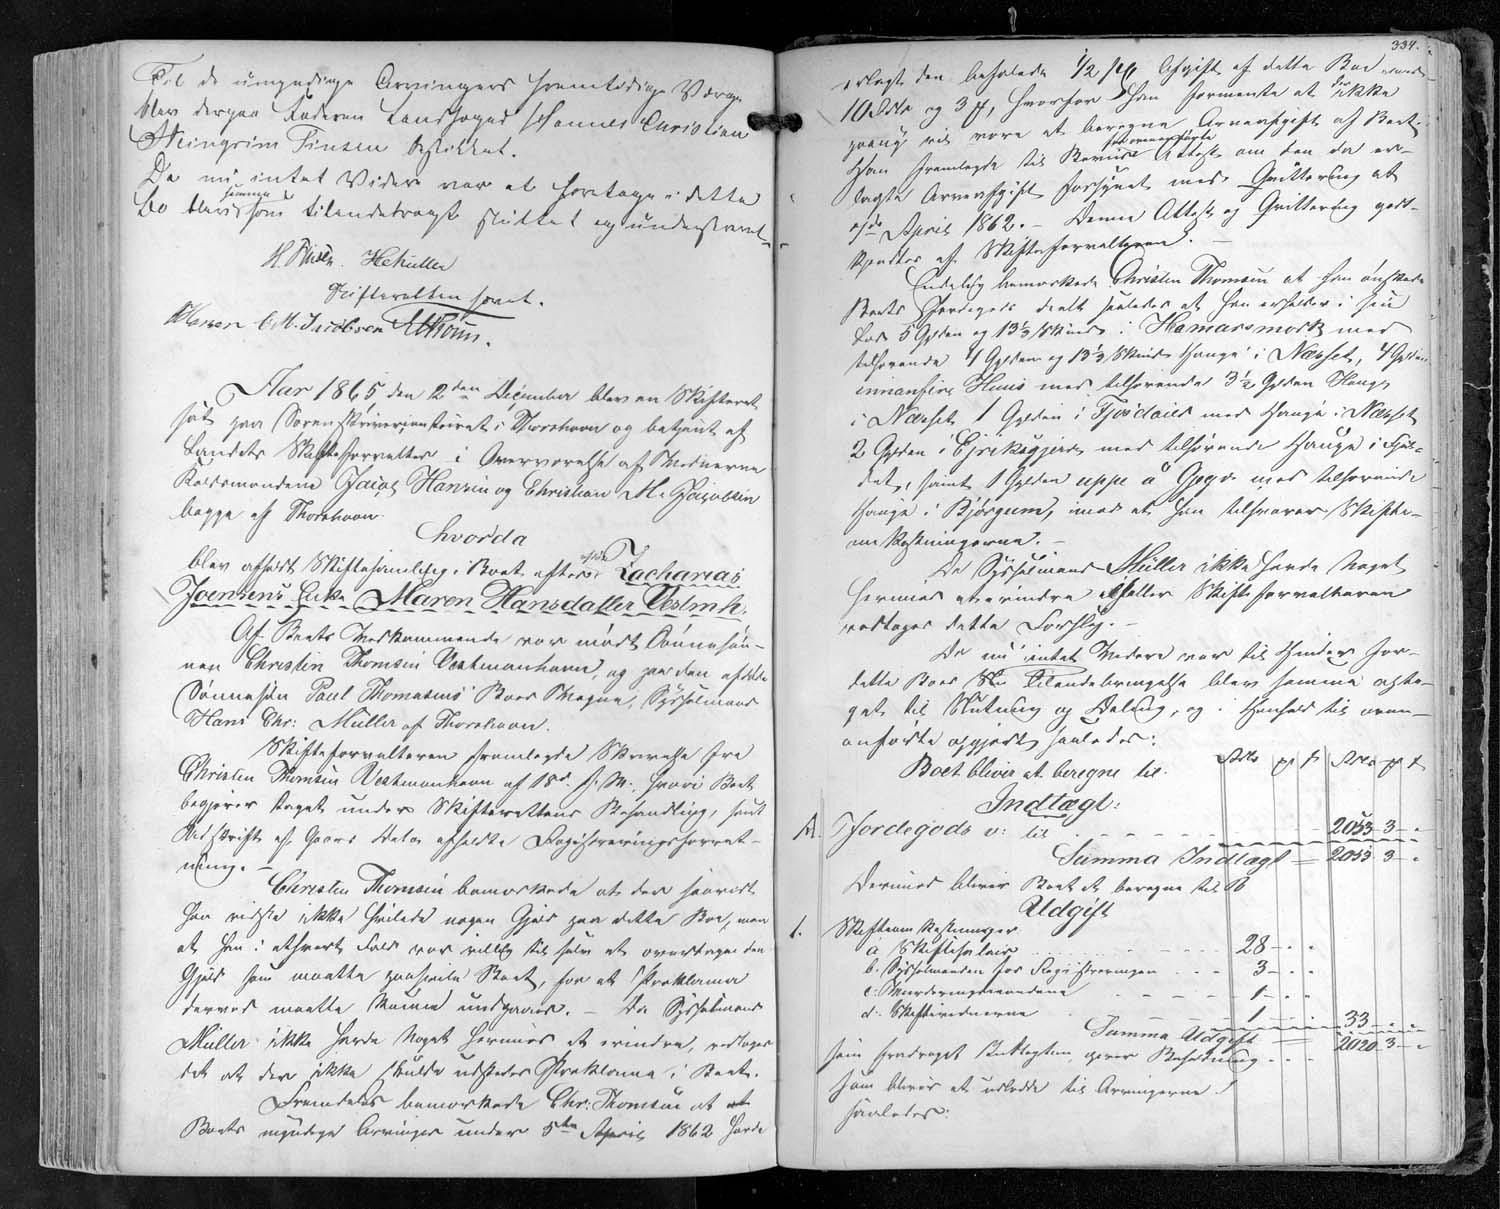 Til de umyndige Arvingers fremtidige Værge
blev derpaa Faderen Landfoged Hannes Christian
Steingrim Finsen beskikket.
Da nu intet Videre var at foretage i dette
Bo blev samme som tilendebragt sluttet og underskrevet
H Finsen. HC Müller
Skifteretten hævet.
J Hansen C. M. Jacobsen
Aar 1865 den 2den December blev en Skifteret
sat paa Sorenskrivercontoiret i Thorshavn og betjent af
Landets Skifteforvalter i Overværelse af Vidnerne
Boelsmændene Jacob Hansen og Christian M. Jacobsen
begge af Thorshavn
hvorda
blev afholdt Skiftesamling i Boet efter afdøde Zacharias
Joensens Enke Maren Hansdatter Vestmh.
Af Boets Vedkommende var mødt Sønnesøn-
nen Christen Thomsen Vestmanhavn, og paa den afdøde
Sønnesøn Paul Thomasens Boes Vegne, Sysselmand
Hans Chr: Müller af Thorshavn.
Skifteforvalteren fremlagde Skrivelse fra
Christen Thomsen Vestmanhavn af 18de f. M., hvori Boet
begjæres taget under Skifterettens Behandling, samt
Udskrift af paa Boets Vegne afholdte Registreringsforret-
ning. –
Christen Thomsen bemærkede at der saavidt
han vidste ikke hvilede nogen Gjæld paa dette Boe, men
at han i ethvert Fald var villig til selv at overtage den
Gjæld som maatte paahvile Boet, for at Proklama
derved maatte kunne undgaaes. – Da Sysselmand
Müller ikke havde Noget herimod at erindre, vedtoges
det at der ikke skulde udstedes Proklama i Boet.
Fremdeles bemærkede Chr: Thomsen at
Boets myndige Arvinger under 5te April 1862 havde
334.
erlagt den befalede 1/2 pC Afgift af dette Boe med
10 Rdlr og 3 ß, hvorfor han formente at der ikke
paany vil være at beregne Arveafgift af Boet.
Han fremlagde til Beviis Attest om den da er-
lagte Arveafgift forsynet med Qvittering af
April 1862. – Denne Attest og Qvittering god-
kjendtes af Skifteforvalteren. –
Endelig bemærkede Christen Thomsen at han ønskede
Boets Jordegods deelt saaledes at han erholder i sin
Lod 5 Gylden og 13 1/3 Skind i Hamarsmørk med
tilhørende 4 Gylden og 13 1/3 Skind Hauge i Næsset, 4 Gylden
innanfire Huus med tilhørende 3 1/2 Gylden Hauge
i Næsset 1 Gylden i Fjosdales med Hauge i Næsset
2 Gylden i Ejriksgjerde med tilhørende Hauge i
det, samt 1 Gylden uppe á Gøgv med tilhørende
Hauge i Bjørgum, imod at han tilsvarer Skifte-
omkostningerne. –
Da Sysselmand Müller ikke havde Noget
herimod at erindre Skifteforvalteren
vedtoges dette Forslag. –
Da nu intet Videre var til Hinder for
dette Boes Tilendebringelse blev samme opta-
get til Slutning og Deling, og i Henhold til oven-
anførte opgjort saaledes:
Boet bliver at beregne til
Indtægt:
A. Jordegods v: til – – – 2053 – 3 –
Summa Indtægt – 2053 – 3 –
Derimod bliver Boet at beregne til B
Udgift
1. Skifteomkostninger
a. Skiftesalair – – – 28 – . .
b. Sysselmanden for Registreringen – – 3 – . .
c. Vurderingsmændene – – – 1 – . .
d. Skiftevidnerne – – – 1 – – 33 – . .
Summa Udgift
som fradraget Indtægten, giver Beholdning – – 2020 – 3 –
som bliver at udlodde til Arvingerne
saaledes: